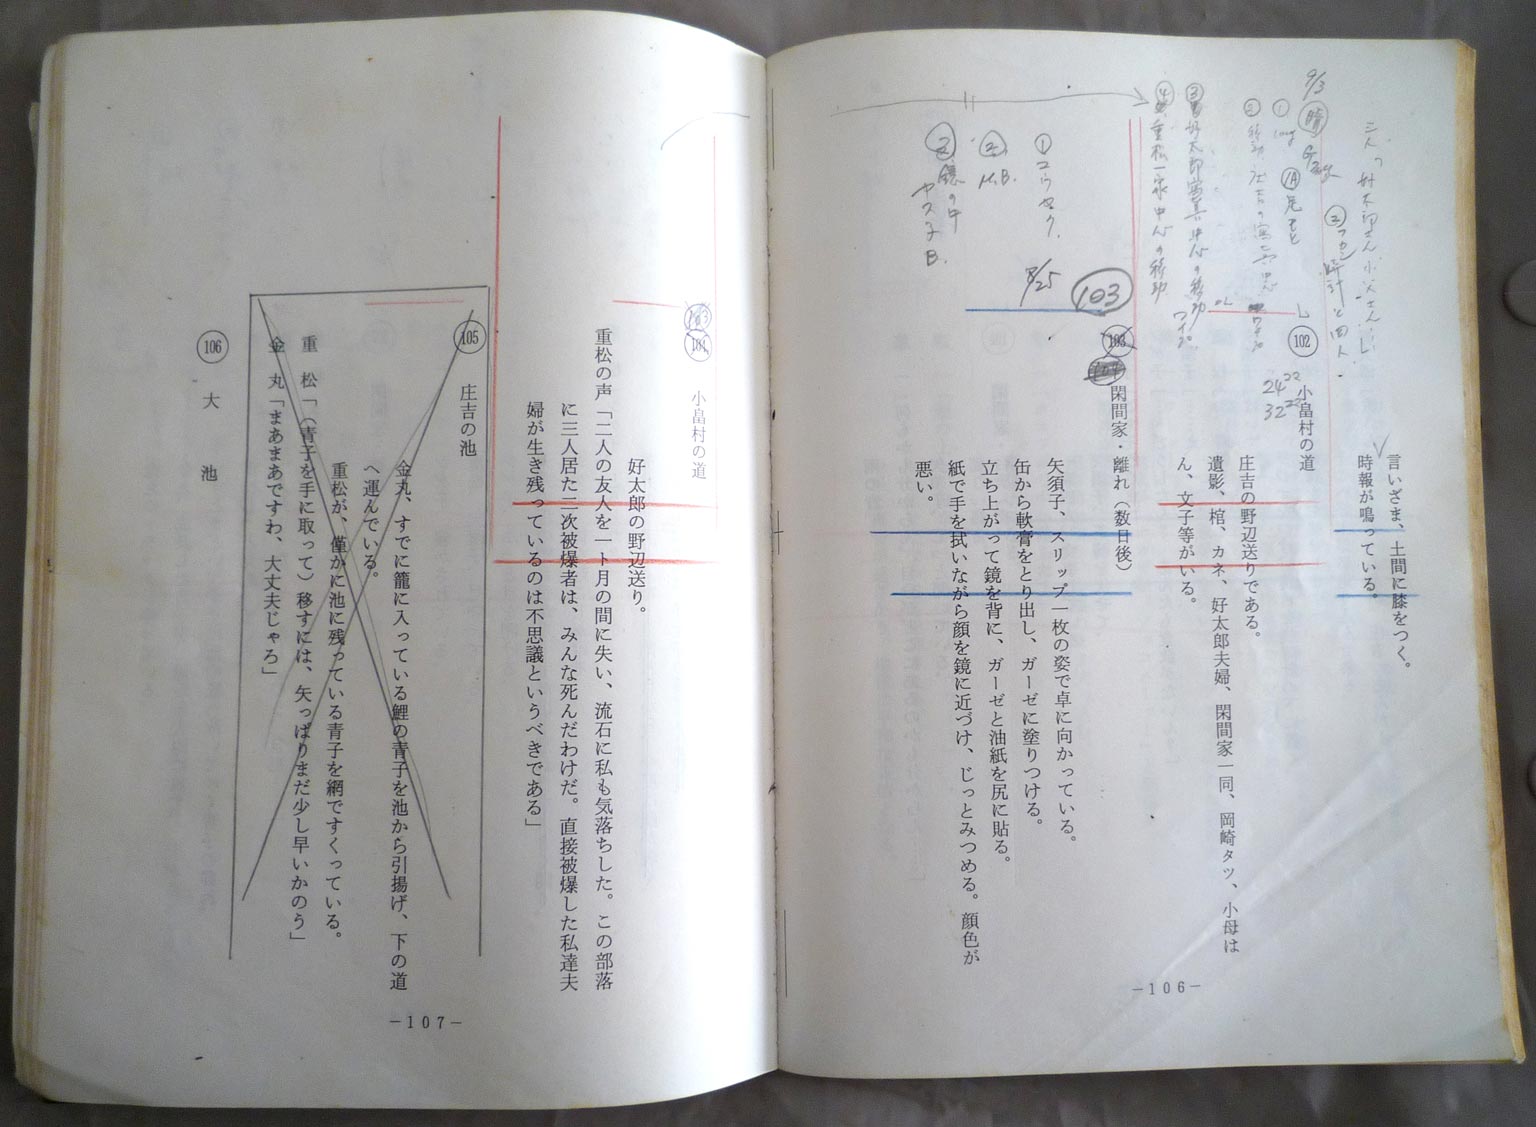 言いざま、土間に膝をつく。
時報が鳴っている。
102 小畠村の道
庄吉の野辺送りである。
遺影、棺、カネ、好太郎夫婦、閑間家一同、岡崎タツ、小母は
ん、文子等がいる。
103
閑間家・離れ（数日後）
矢須子、スリップ一枚の姿で卓に向かっている。
缶から軟膏をとり出し、ガーゼに塗りつける。
立ち上がって鏡を背に、ガーゼと油紙を尻に貼る。
紙で手を拭いながら顔を鏡に近づけ、じっとみつめる。顔色が
悪い。
9/3 晴
① Long
24 22
32 22
8/25
103
① ユウセク.
② M.B.
鏡の中
ヤス子
B.
－106－
小畠村の道
好太郎の野辺送り。
重松の声「二人の友人を一ト月の間に失い、流石に私も気落ちした。この部落
に三人居た二次被爆者は、みんな死んだわけだ。直接被爆した私達夫
婦が生き残っているのは不思議というべきである」
105 庄吉の池
金丸、すでに籠に入っている鯉の青子を池から引揚げ、下の道
へ運んでいる。
重松が、僅かに池に残っている青子を網ですくっている。
重　松「（青子を手に取って）移すには、矢っぱりまだ少し早いかのう」
金　丸「まあまあですわ、大丈夫じゃろ」
106 大　池
－107－